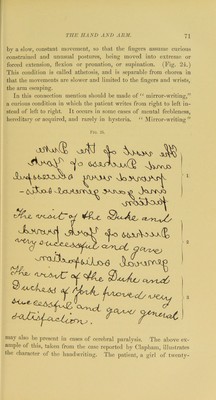 THE HAND AND ARM.
71
by a slow, constant movement, so that the fingers assume curious
constrained and unusual postures, being moved into extreme or
forced extension, flexion or pronation, or supination. (Fig. 24.)
This condition is called athetosis, and is separable from chorea in
that the movements are slower and limited to the fingers and wrists,
the arm escaping.
In this connection mention should be made of "mirror-writing,"
a curious condition in which the patient writes from right to left in-
stead of left to right. It occurs in some cases of mental feebleness,
hereditary or acquired, and rarely in hysteria. "Mirror-writing"
The visit of the Duke
and Duchess of York
proved very successful
and gave general satis-
faction
1
The visit of the Duke and
Duchess of York proved
very successful and gave
general satisfaction
2
The visit of the Duke and
Duchess of York proved very
successful and gave general
satisfaction.
3
may also be present in cases of cerebral paralysis. The above ex-
ample of this, taken from the case reported by Clapham, illustrates
the character of the handwriting. The patient, a girl of twenty-